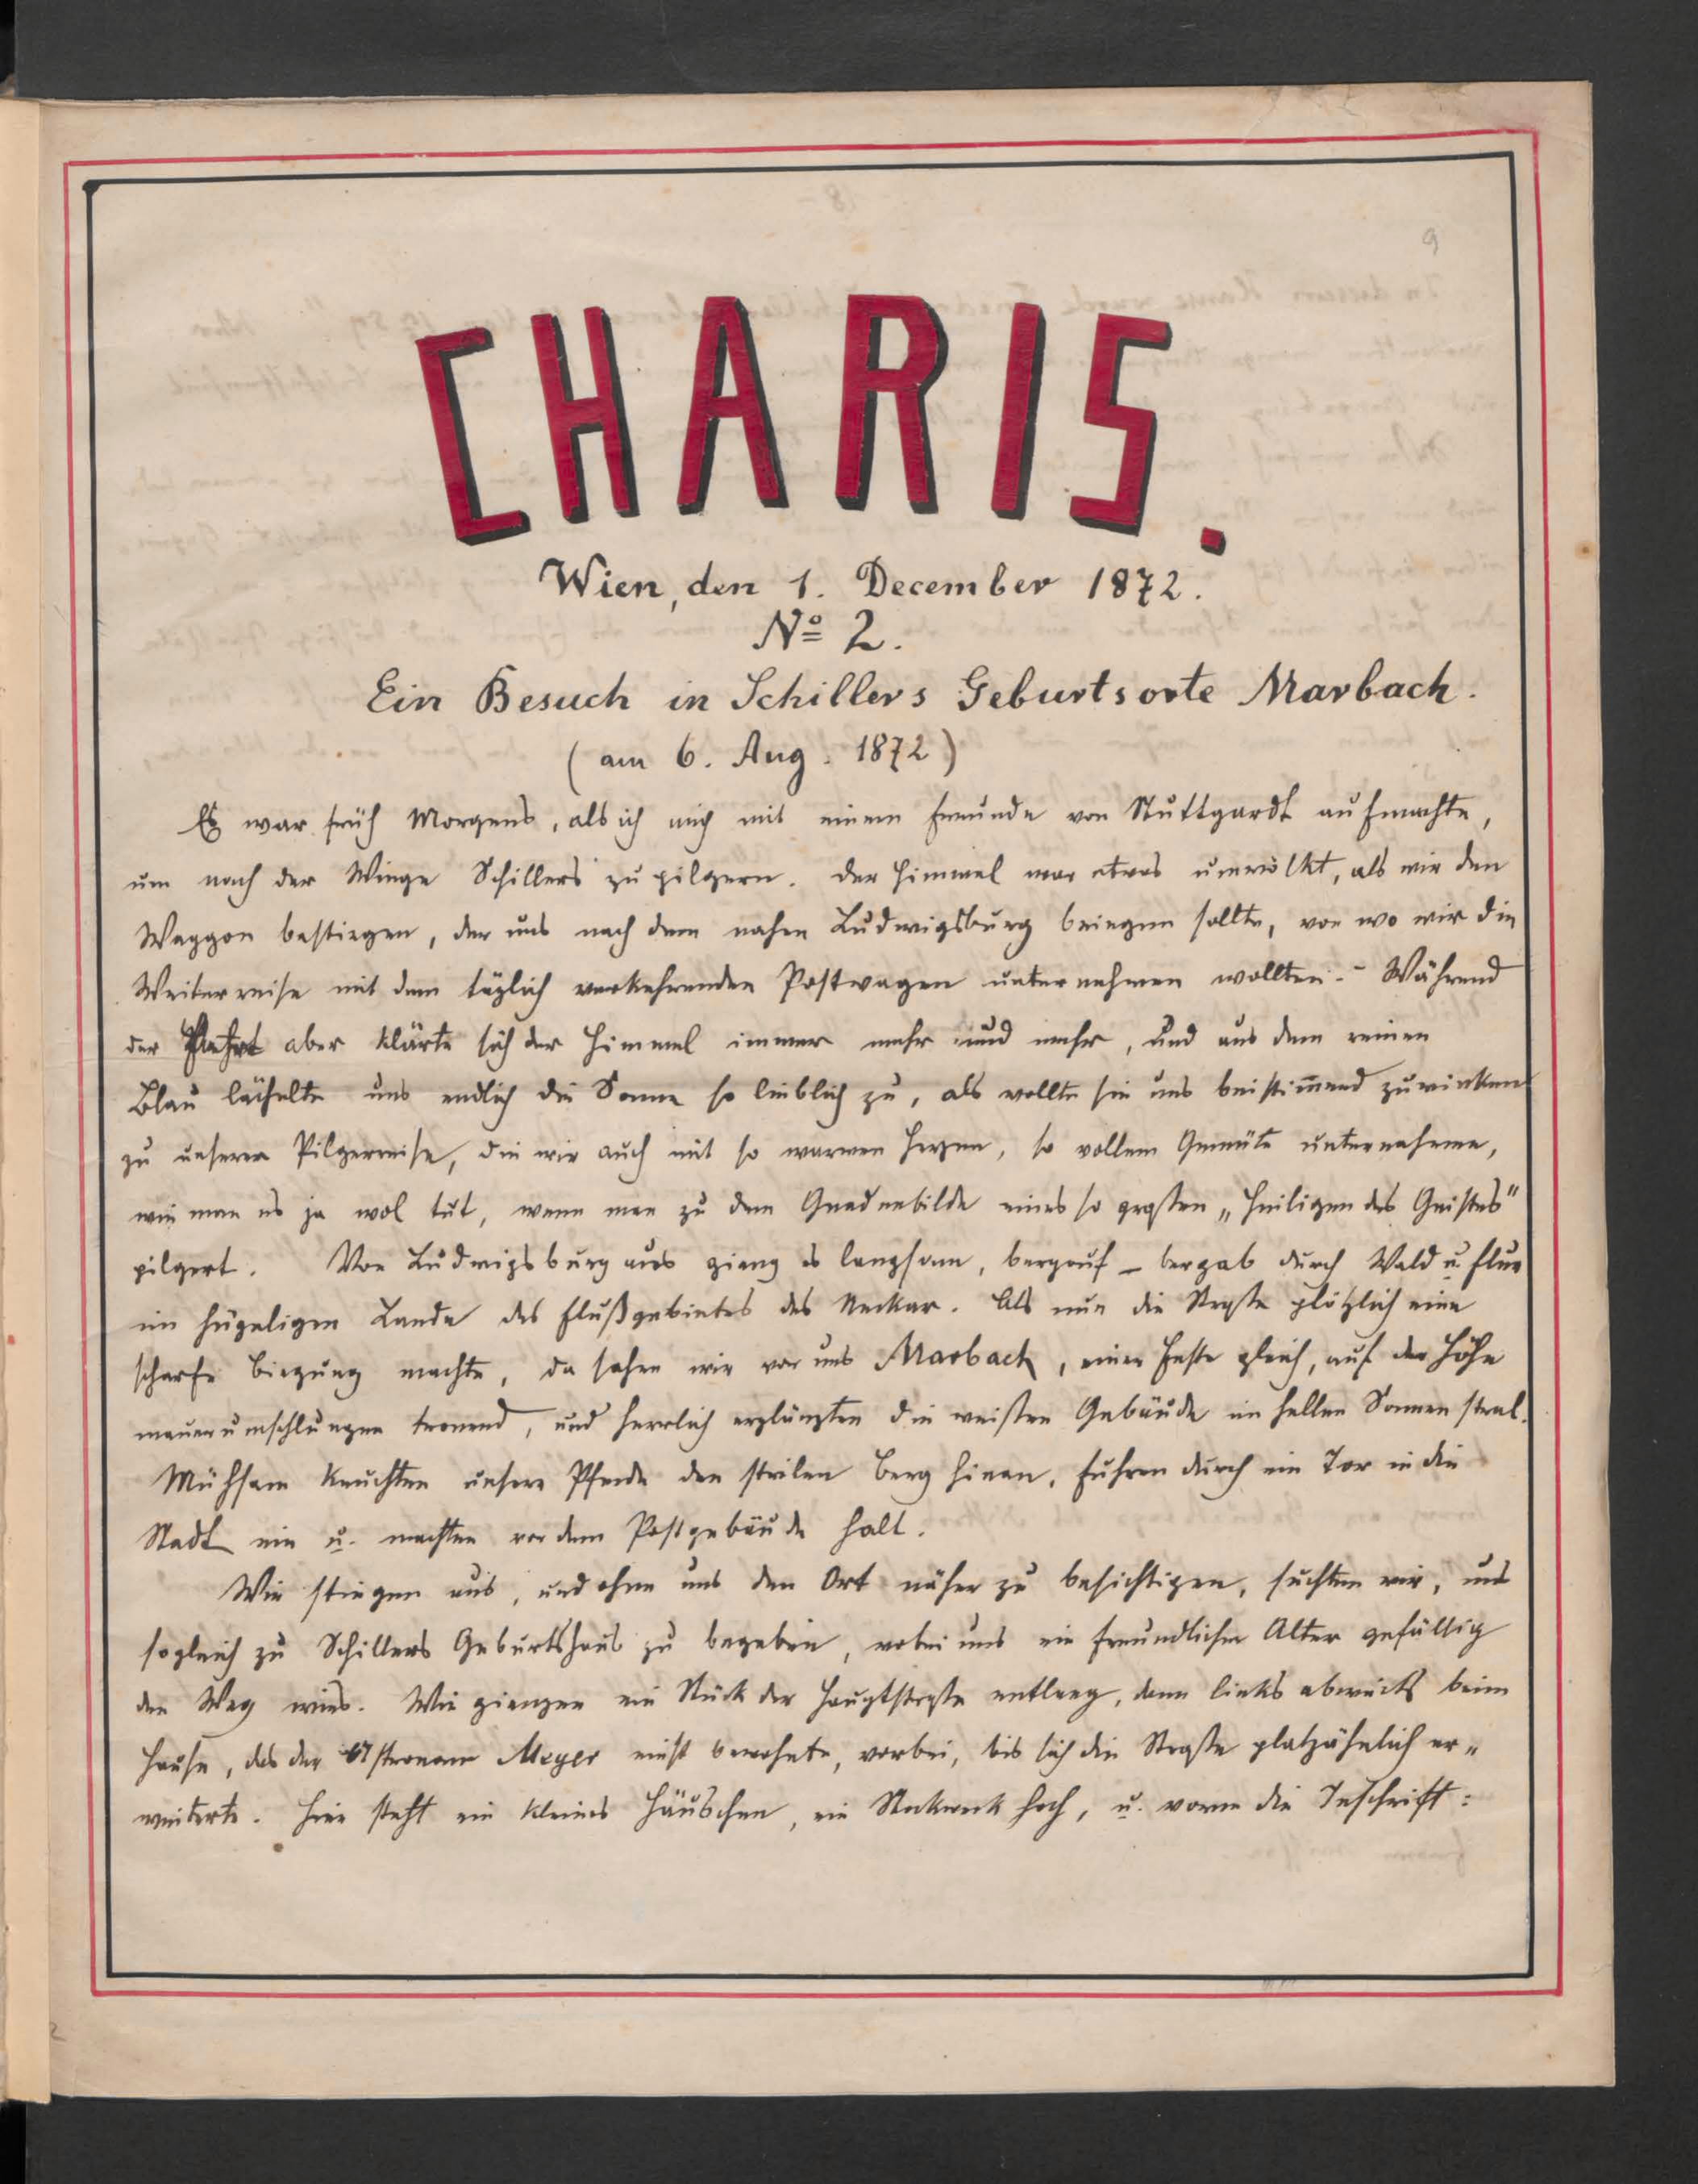 9
CHARIS.
Wien, den 1. December 1872.
Nº 2.
Ein Besuch in Schillers Geburtsorte Marbach.
(am 6. Aug. 1872)
Es war früh Morgens, als ich mich mit einem Freunde von Stuttgardt aufmachte,
um nach der Wiege Schillers zu pilgern. Der Himmel war etwas umwölkt, als wir den
Waggon bestiegen, der uns nach dem nahen Ludwigsburg bringen sollte, von wo wir die
Weiterreise mit dem täglich verkehrenden Postwagen unternehmen wollten. – Während
der Fahrt aber klärte sich der Himmel immer mehr und mehr, und aus dem reinen
Blau lächelte uns endlich die Sonne so lieblich zu, als wollte sie uns beistimmend zuwinken
zu unserer Pilgerreise, die wir auch mit so warmen Herzen, so vollem Gemüte unternahmen,
wie man es ja wol tut, wenn man zu dem Gnadenbilde eines so großen „Heiligen des Geistes"
pilgert. Von Ludwigsburg aus gieng es langsam, bergauf – bergab durch Wald u. Flur
im hügeligen Lande des Flußgebietes des Neckar. Als nun die Straße plötzlich eine
scharfe Biegung machte, da sahen wir vor uns Marbach, einer Feste gleich, auf der Höhe
mauerumschlungen tronend, und herrlich erglänzten die weißen Gebäude im hellen Sonnenstral.
Mühsam keuchten unsere Pferde den steilen Berg hinan, fuhren durch ein Tor in die
Stadt ein u. machten vor dem Postgebäude halt.
Wir stiegen aus, und ohne uns den Ort näher zu besichtigen, suchten wir, uns
sogleich zu Schillers Geburtshaus zu begeben, wobei uns ein freundlicher Alter gefällig
den Weg wies. Wir giengen ein Stück der Hauptstraße entlang, dann links abwärts beim
Hause, das der Astronom Meyer einst bewohnte, vorbei, bis sich die Straße platzähnlich er„
weiterte. Hier steht ein kleines Häuschen, ein Stockwerk hoch, u. vorne die Inschrift: